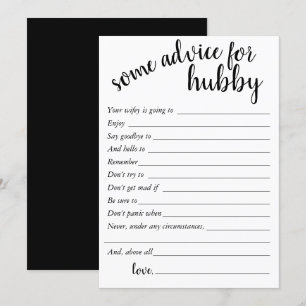 some advice for
hubby
Your wifey is going to
Enjoy
Say goodbye to
And hello to
Remember
Don't try to
Don't get mad if
Be sure to
Don't panic when
Never, under any circumstances,
And, above all
love,